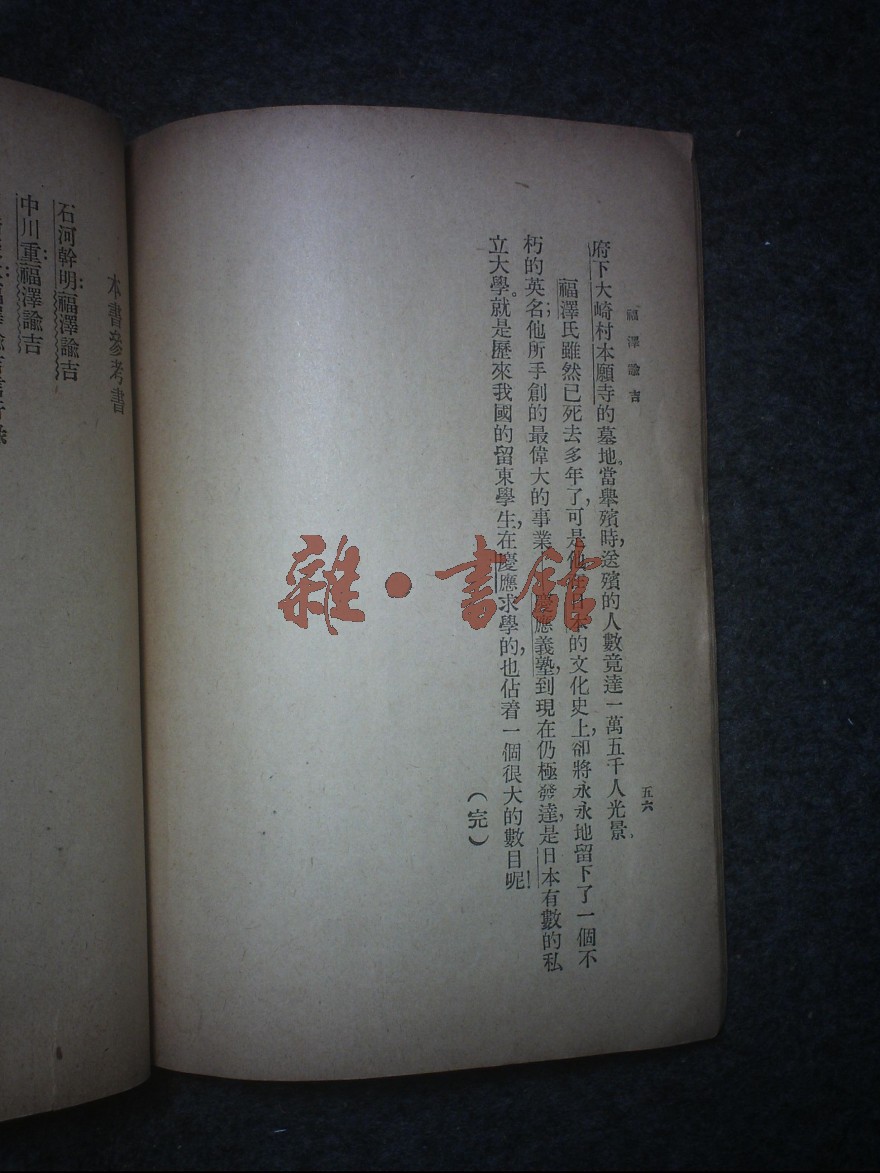 福澤諭吉
五六
府下大崎村本願寺的墓地。當舉殯時,送殯的人數竟達一萬五千人光景。
福澤氏雖然已死去多年了,可是他在日本的文化史上,卻將永永地留下了一個不
朽的英名;他所手創的最偉大的事業慶應義塾,到現在仍極發達,是日本有數的私
立大學。就是歷來我國的留東學生,在慶應求學的,也佔着一個很大的數目呢!
(完)
本書參考書
石河幹明:福澤諭吉
中川重:福澤諭吉
雜·書館